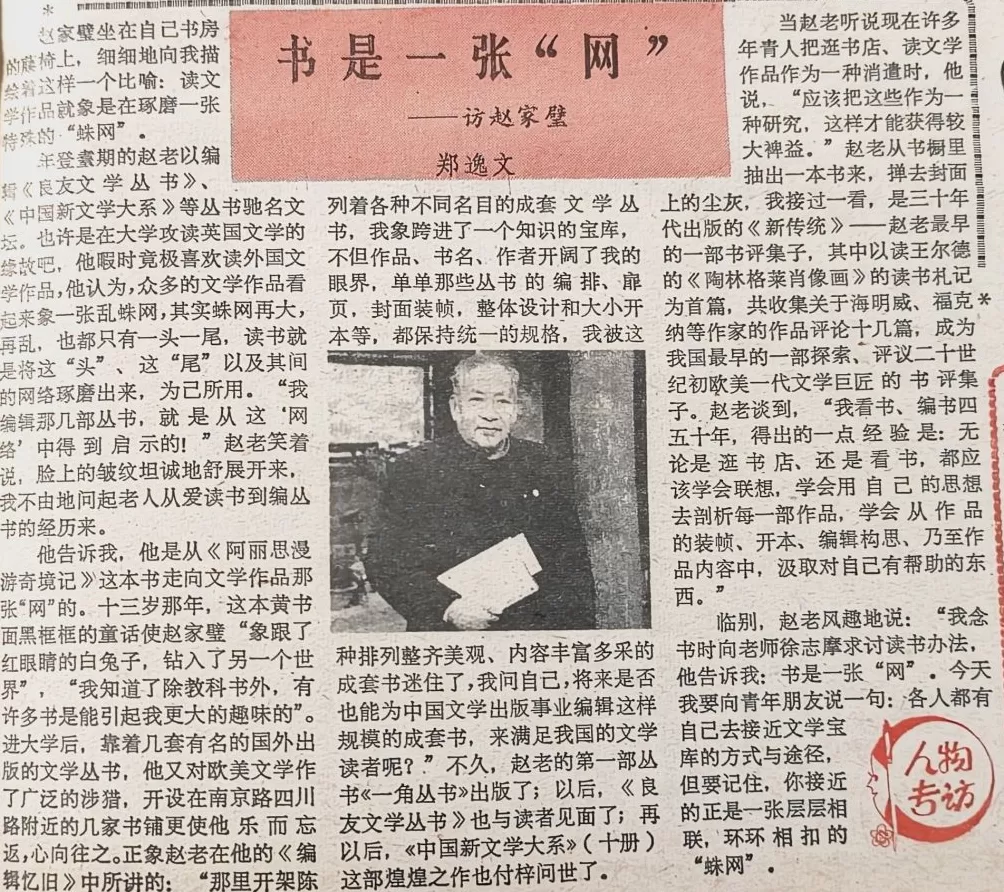 书是一张“网”
——访赵家璧
郑逸文
赵家璧坐在自己书房
的藤椅上，细细地向我描
绘着这样一个比喻：读文
学作品就象是在琢磨一张
特殊的“蛛网”．
年登耋期的赵老以编
辑《良友文学丛书》、
《中国新文学大系》等丛书驰名文
坛。也许是在大学攻读英国文学的
缘故吧，他暇时竟极喜欢读外国文
学作品，他认为，众多的文学作品看
起来象一张乱蛛网，其实蛛网再大，
再乱，也都只有一头一尾，读书就
是将这“头”、这“尾”以及其间
的网络琢磨出来，为己所用。“我
编辑那几部丛书，就是从这‘网
络’中得到启示的！”赵老笑着
说，脸上的皱纹坦诚地舒展开来，
我不由地问起老人从爱读书到编丛
书的经历来。
他告诉我，他是从《阿丽思漫
游奇境记》这本书走向文学作品那
张“网”的。十三岁那年，这本黄书
面黑框框的童话使赵家璧“象跟了
红眼睛的白兔子，钻入了另一个世
界”，“我知道了除教科书外，有
许多书是能引起我更大的趣味的”。
进大学后，靠着几套有名的国外出
版的文学丛书，他又对欧美文学作
了广泛的涉猎，开设在南京路四川
路附近的几家书铺更使他乐而忘
返，心向往之。正象赵老在他的《编
辑忆旧》中所讲的：“那里开架陈
列着各种不同名目的成套文学丛
书，我象跨进了一个知识的宝库，
不但作品、书名、作者开阔了我的
眼界，单单那些丛书的编排、扉
页，封面装帧，整体设计和大小开
本等，都保持统一的规格，我被这
种排列整齐美观、内容丰富多采的
成套书迷住了，我问自己，将来是否
也能为中国文学出版事业编辑这样
规模的成套书，来满足我国的文学
读者呢？”不久，赵老的第一部丛
书《一角丛书》出版了；以后，《良
友文学丛书》也与读者见面了；再
以后，《中国新文学大系》（十册）
这部煌煌之作也付梓问世了。
当赵老听说现在许多
年青人把逛书店、读文学
作品作为一种消遣时，他
说，“应该把这些作为一
种研究，这样才能获得较
大裨益。”赵老从书橱里
抽出一本书来，掸去封面
上的尘灰，我接过一看，是三十年
代出版的《新传统》——赵老最早
的一部书评集子，其中以读王尔德
的《陶林格莱肖像画》的读书札记
为首篇，共收集关于海明威、福克
纳等作家的作品评论十几篇，成为
我国最早的一部探索、评议二十世
纪初欧美一代文学巨匠的书评集
子。赵老谈到，“我看书、编书四
五十年，得出的一点经验是：无
论是逛书店、还是看书，都应
该学会联想，学会用自己的思想
去剖析每一部作品，学会从作品
的装帧、开本、编辑构思、乃至作
品内容中，汲取对自己有帮助的东
西。”
临别，赵老风趣地说：“我念
书时向老师徐志摩求讨读书办法，
他告诉我：书是一张“网”．今天
我要向青年朋友说一句：各人都有
自己去接近文学宝
库的方式与途径，
但要记住，你接近
的正是一张层层相
联，环环相扣的
“蛛网”．
人物
专访